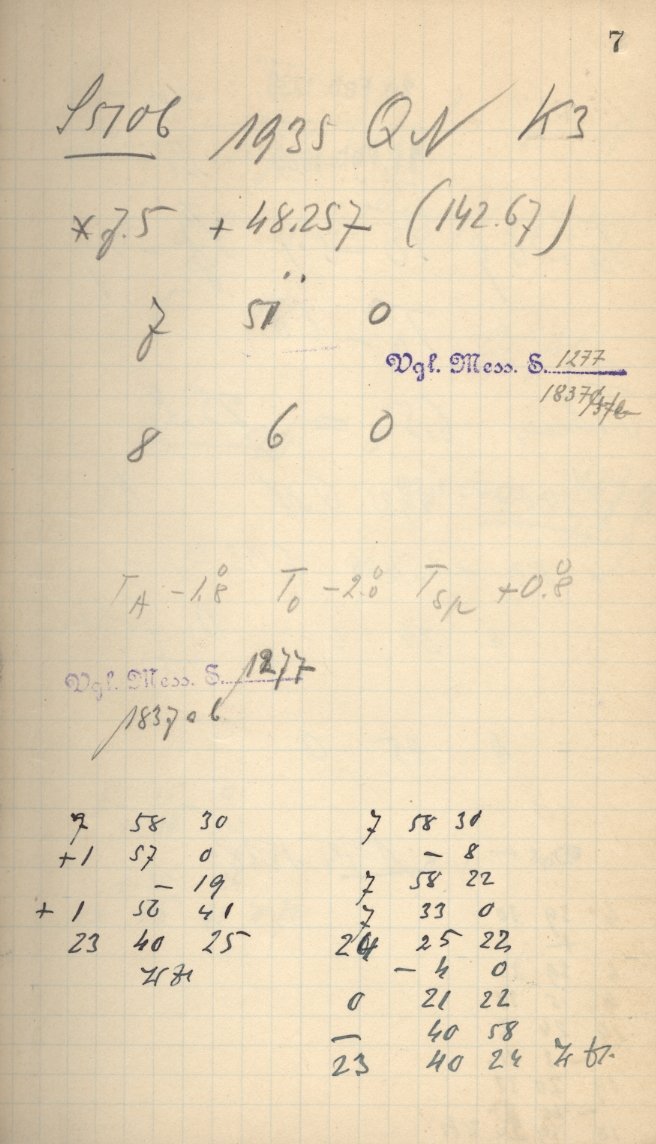 7
S5706 1935 QN K3
* 7.5 + 48.257 (142.67)
7 51 0
Vgl. Mess. S. 1277
1837
8 6 0
T_A -1.°8 T_0 -2.°0 T_Sp +0.°8
Vgl. Mess. S. 1277
1837 a b
7 58 30
+1 57 0
- 19
+ 1 56 41
23 40 25
7 58 30
- 8
7 58 22
7 33 0
24 25 22
- 4 0
0 21 22
- 40 58
23 40 24